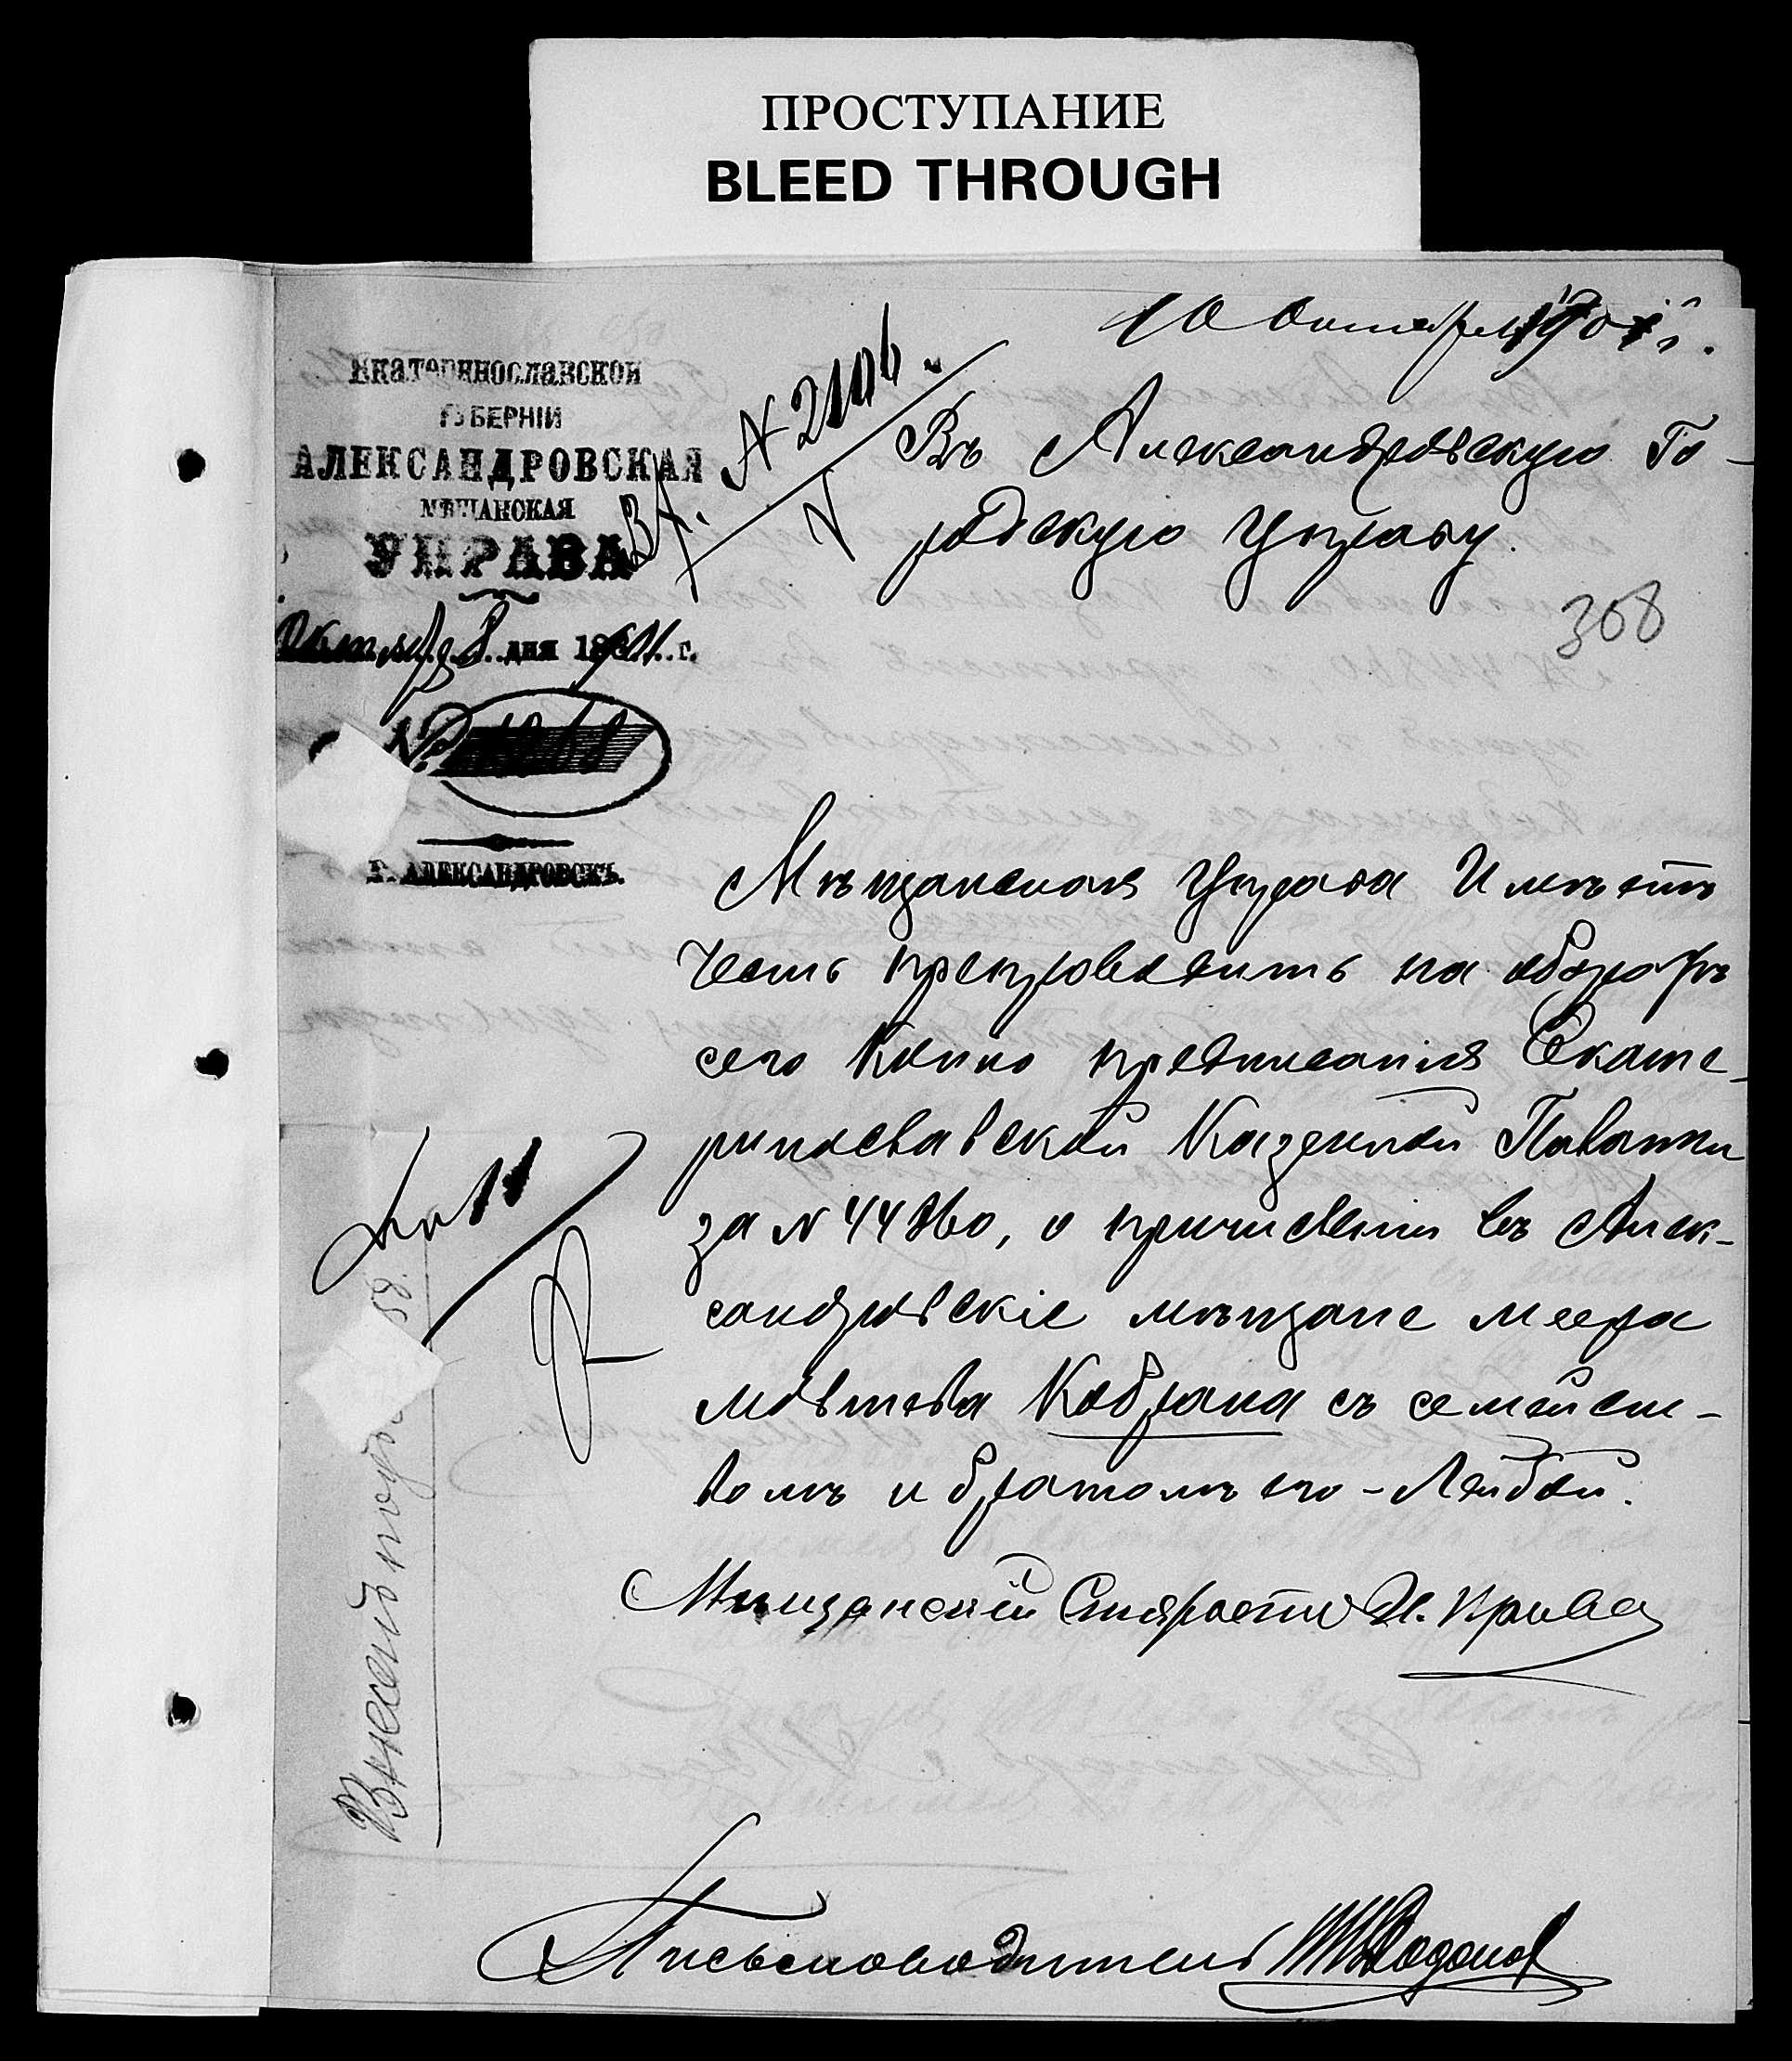 ПРОСТУПАНИЕ
BLEED THROUGH
10 Октября 1901 г.
Екатеринославской
ГУБЕРНІИ
АЛЕКСАНДРОВСКАЯ
МѢЩАНСКАЯ
УПРАВА
Октября 8 дня 1901 г.
№
Г. АЛЕКСАНДРОВСКЪ.
Вх. № 2106.
Въ Александровскую Го-
родскую Управу.
368
Мѣщанская Управа Имѣетъ
честь препроводить на оборотѣ
сего копію предписанія Екате-
ринославской Казенной Палаты
за № 44860, о причисленіи въ Алек-
сандровскіе мѣщане Меера
Мовшева Кобрана съ семейст-
вомъ и братомъ его - Лейбой.
Мѣщанскій Староста И. Крива
Письмоводитель
Внесенъ подъ